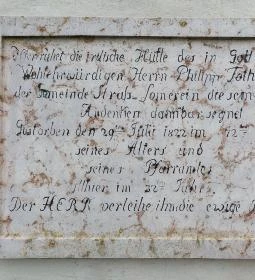 Hier ruhet die irdische Hülle des in Gott
Wohlehrwürdigen Herrn Philipp Toth
der Gemeinde Straß-Somerein die sein
Andenken dankbar segnet
Gestorben den 29ten Juli 1822 im
seines Alters und
seines Pfarramtes
allhier im 32ten Jahre.
Der HERR verleihe ihm die ewige